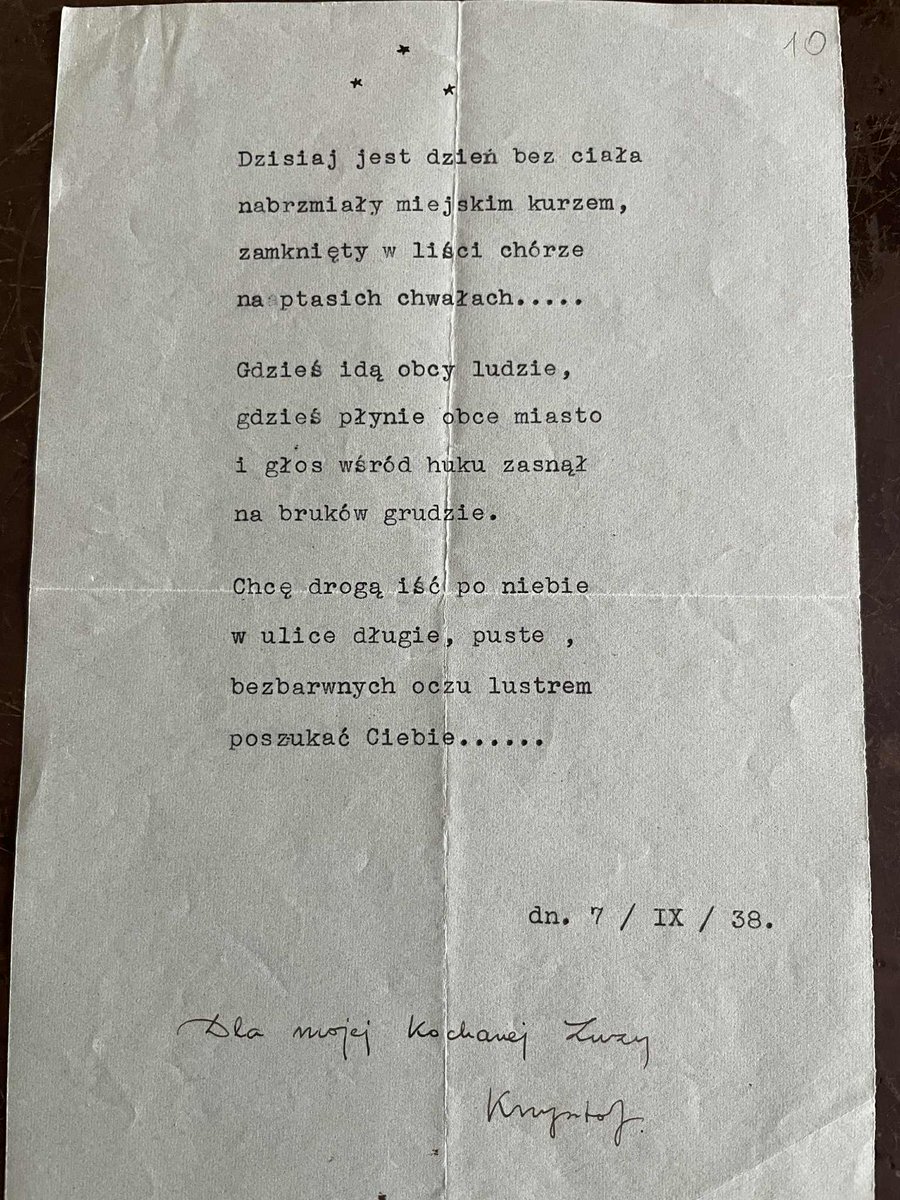 10
* * *
Dzisiaj jest dzień bez ciała
nabrzmiały miejskim kurzem,
zamknięty w liści chórze
na ptasich chwałach.....
Gdzieś idą obcy ludzie,
gdzieś płynie obce miasto
i głos wśród huku zasnął
na bruków grudzie.
Chcę drogą iść po niebie
w ulice długie, puste ,
bezbarwnych oczu lustrem
poszukać Ciebie......
dn. 7 / IX / 38.
Dla mojej Kochanej Zuzy
Krzysztof.